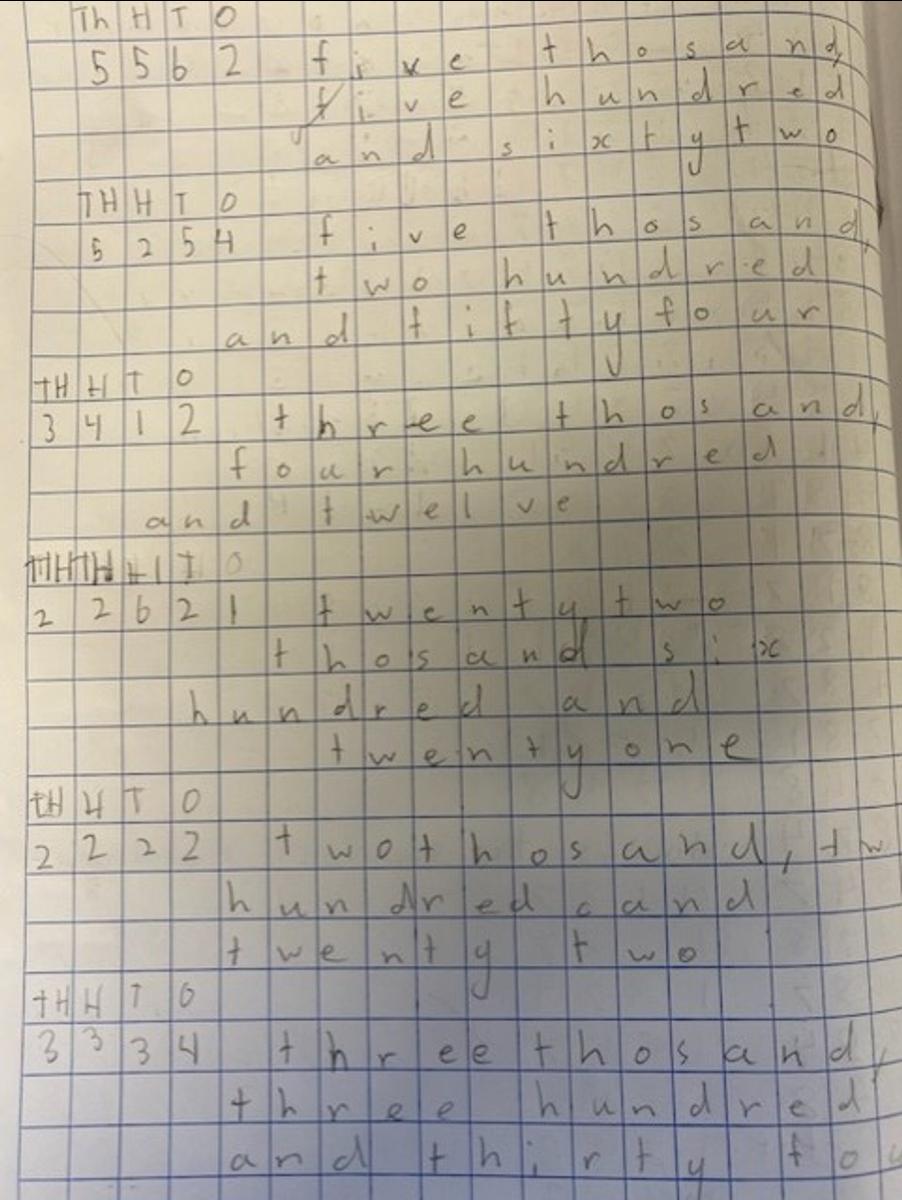 Th H T O
5 5 6 2 five thosand,
five hundred
and sixty two
TH H T O
5 2 5 4 five thosand,
two hundred
and tifty four
TH H T O
3 4 1 2 three thosand,
four hundred
and twelve
TTH TH H T O
2 2 6 2 1 twenty two
thosand six
hundred and
twenty one
tH H T O
2 2 2 2 two thosand, tw
hundred and
twenty two
tH H T O
3 3 3 4 three thosand,
three hundred
and thirty fou